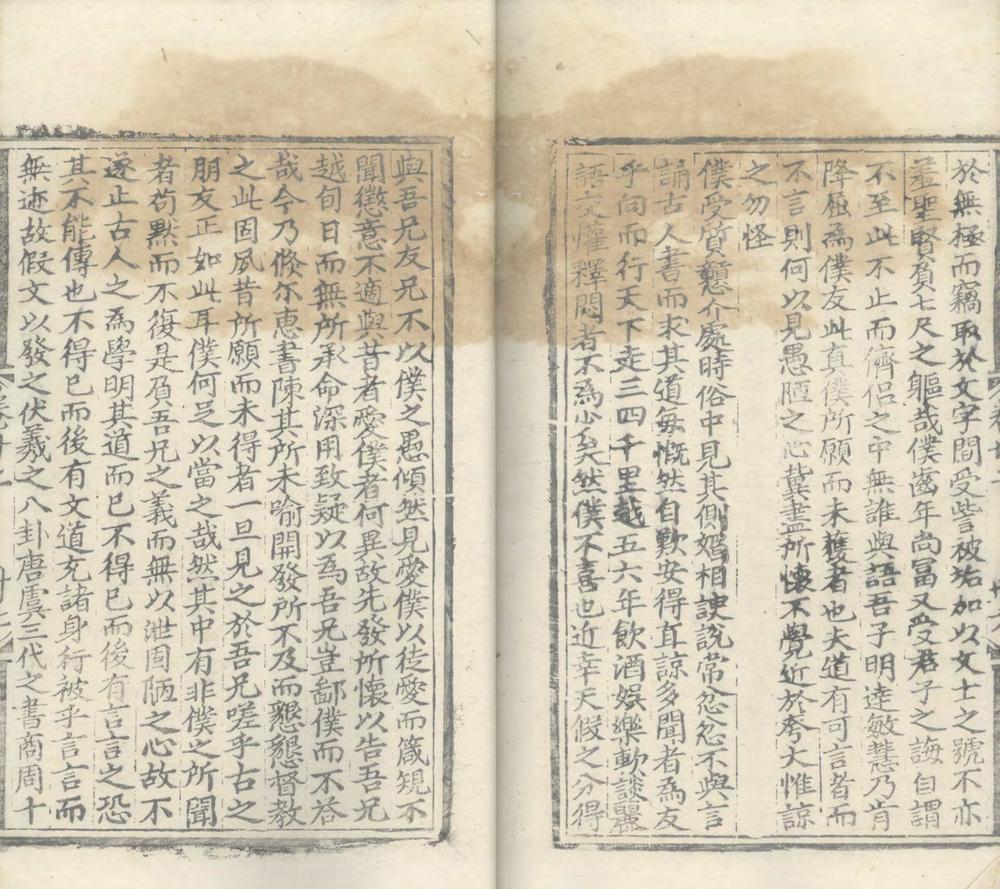 於無極而竊取於文字間受訾被垢加以文士之號不亦
羞聖賢負七尺之軀哉僕齒年尚冨又受君子之誨自謂
不至此不止而儕侣之中無誰與語吾子明達敏慧乃肯
降屈為僕友此真僕所願而未獲者也夫道有可言者而
不言則何以見愚陋之心冀盡所懷不覺近於夸大惟諒
之勿怪
僕受質戇介處時俗中見其側媚相諛說常忿忿不與言
誦古人書而求其道每慨然自歎安得直諒多聞者為友
乎向而行天下走三四千里越五六年飲酒娯樂動談麗
語交懽釋悶者不為少矣然僕不喜也近幸天假之分得
與吾兄友兄不以僕之愚傾然見愛僕以徒愛而箴䂓不
聞懲意不適與昔者愛僕者何異故先發所懷以告吾兄
越旬日而無所承命深用致疑以為吾兄豈鄙僕而不答
哉今乃倐尓惠書陳其所未喻開發所不及而懇懇督教
之此固夙昔所願而未得者一旦見之於吾兄嗟乎古之
朋友正如此耳僕何足以當之哉然其中有非僕之所聞
者苟默而不復是負吾兄之義而無以泄固陋之心故不
遂止古人之為學明其道而已不得已而後有言言之恐
其不能傳也不得已而後有文道充諸身行被乎言言而
無迹故假文以發之伏羲之八卦唐虞三代之書商周十